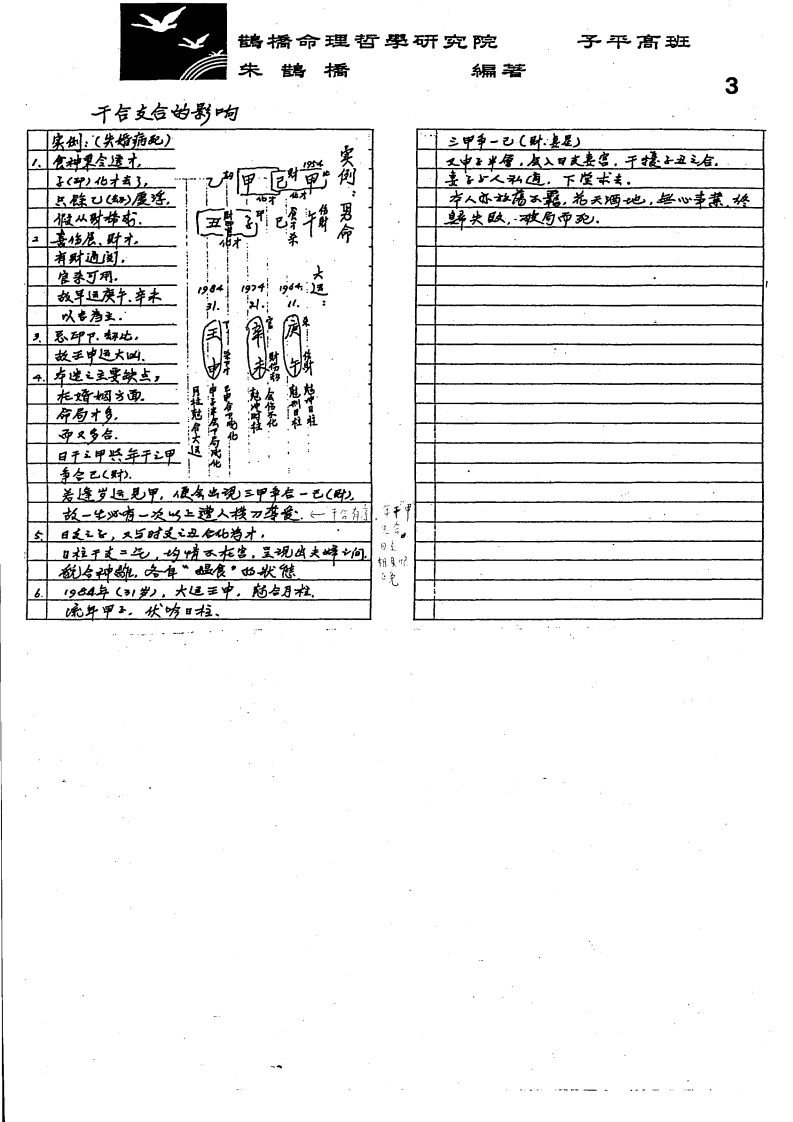 鵲橋命理哲學研究院 子平高班
朱鵲橋 編著
3
干合支合的影响
实例：(失婚病死)
1. 食神异会透才，
子(印)化才去了，
只餘乙(劫)虚浮，
假从财格局.
2 喜伤层、财才，
有财通関，
官杀可用.
故早运庚午.辛未
以吉為主.
3. 忌印卩、劫比，
故壬申运大凶.
4. 本造之主要缺点，
在婚姻方面.
命局才多.
而又多合.
日干之甲與年干之甲
争合己(财).
若逢岁运見甲，便会出现三甲争合一己(财).
故一生必有一次以上遭人横刀奪愛. ← 干合有
5. 日支之子，又与时支之丑合化為才，
日柱干支二宅，均情不在宫，呈现出夫婦之间，
貌合神離，各有"媼食"的状態
6. 1984年(31岁)，大运壬申，尅合月柱.
流年甲子，伏吟日柱.
实例：男命
1954
甲 己 甲 乙
午 巳 子 丑
大运：
1964 1974 1984
11. 21. 31.
庚午 辛未 壬申
尅冲日柱
尅刑日柱
尅冲时柱
月柱尅合大运
三甲争一己(财.妻星)
又申子半會，会入日支妻宫，干擾子丑之合.
妻子与人私通，下堂求去.
本人亦放蕩不羁，花天酒地，無心事業，终
歸失敗，破局而死.